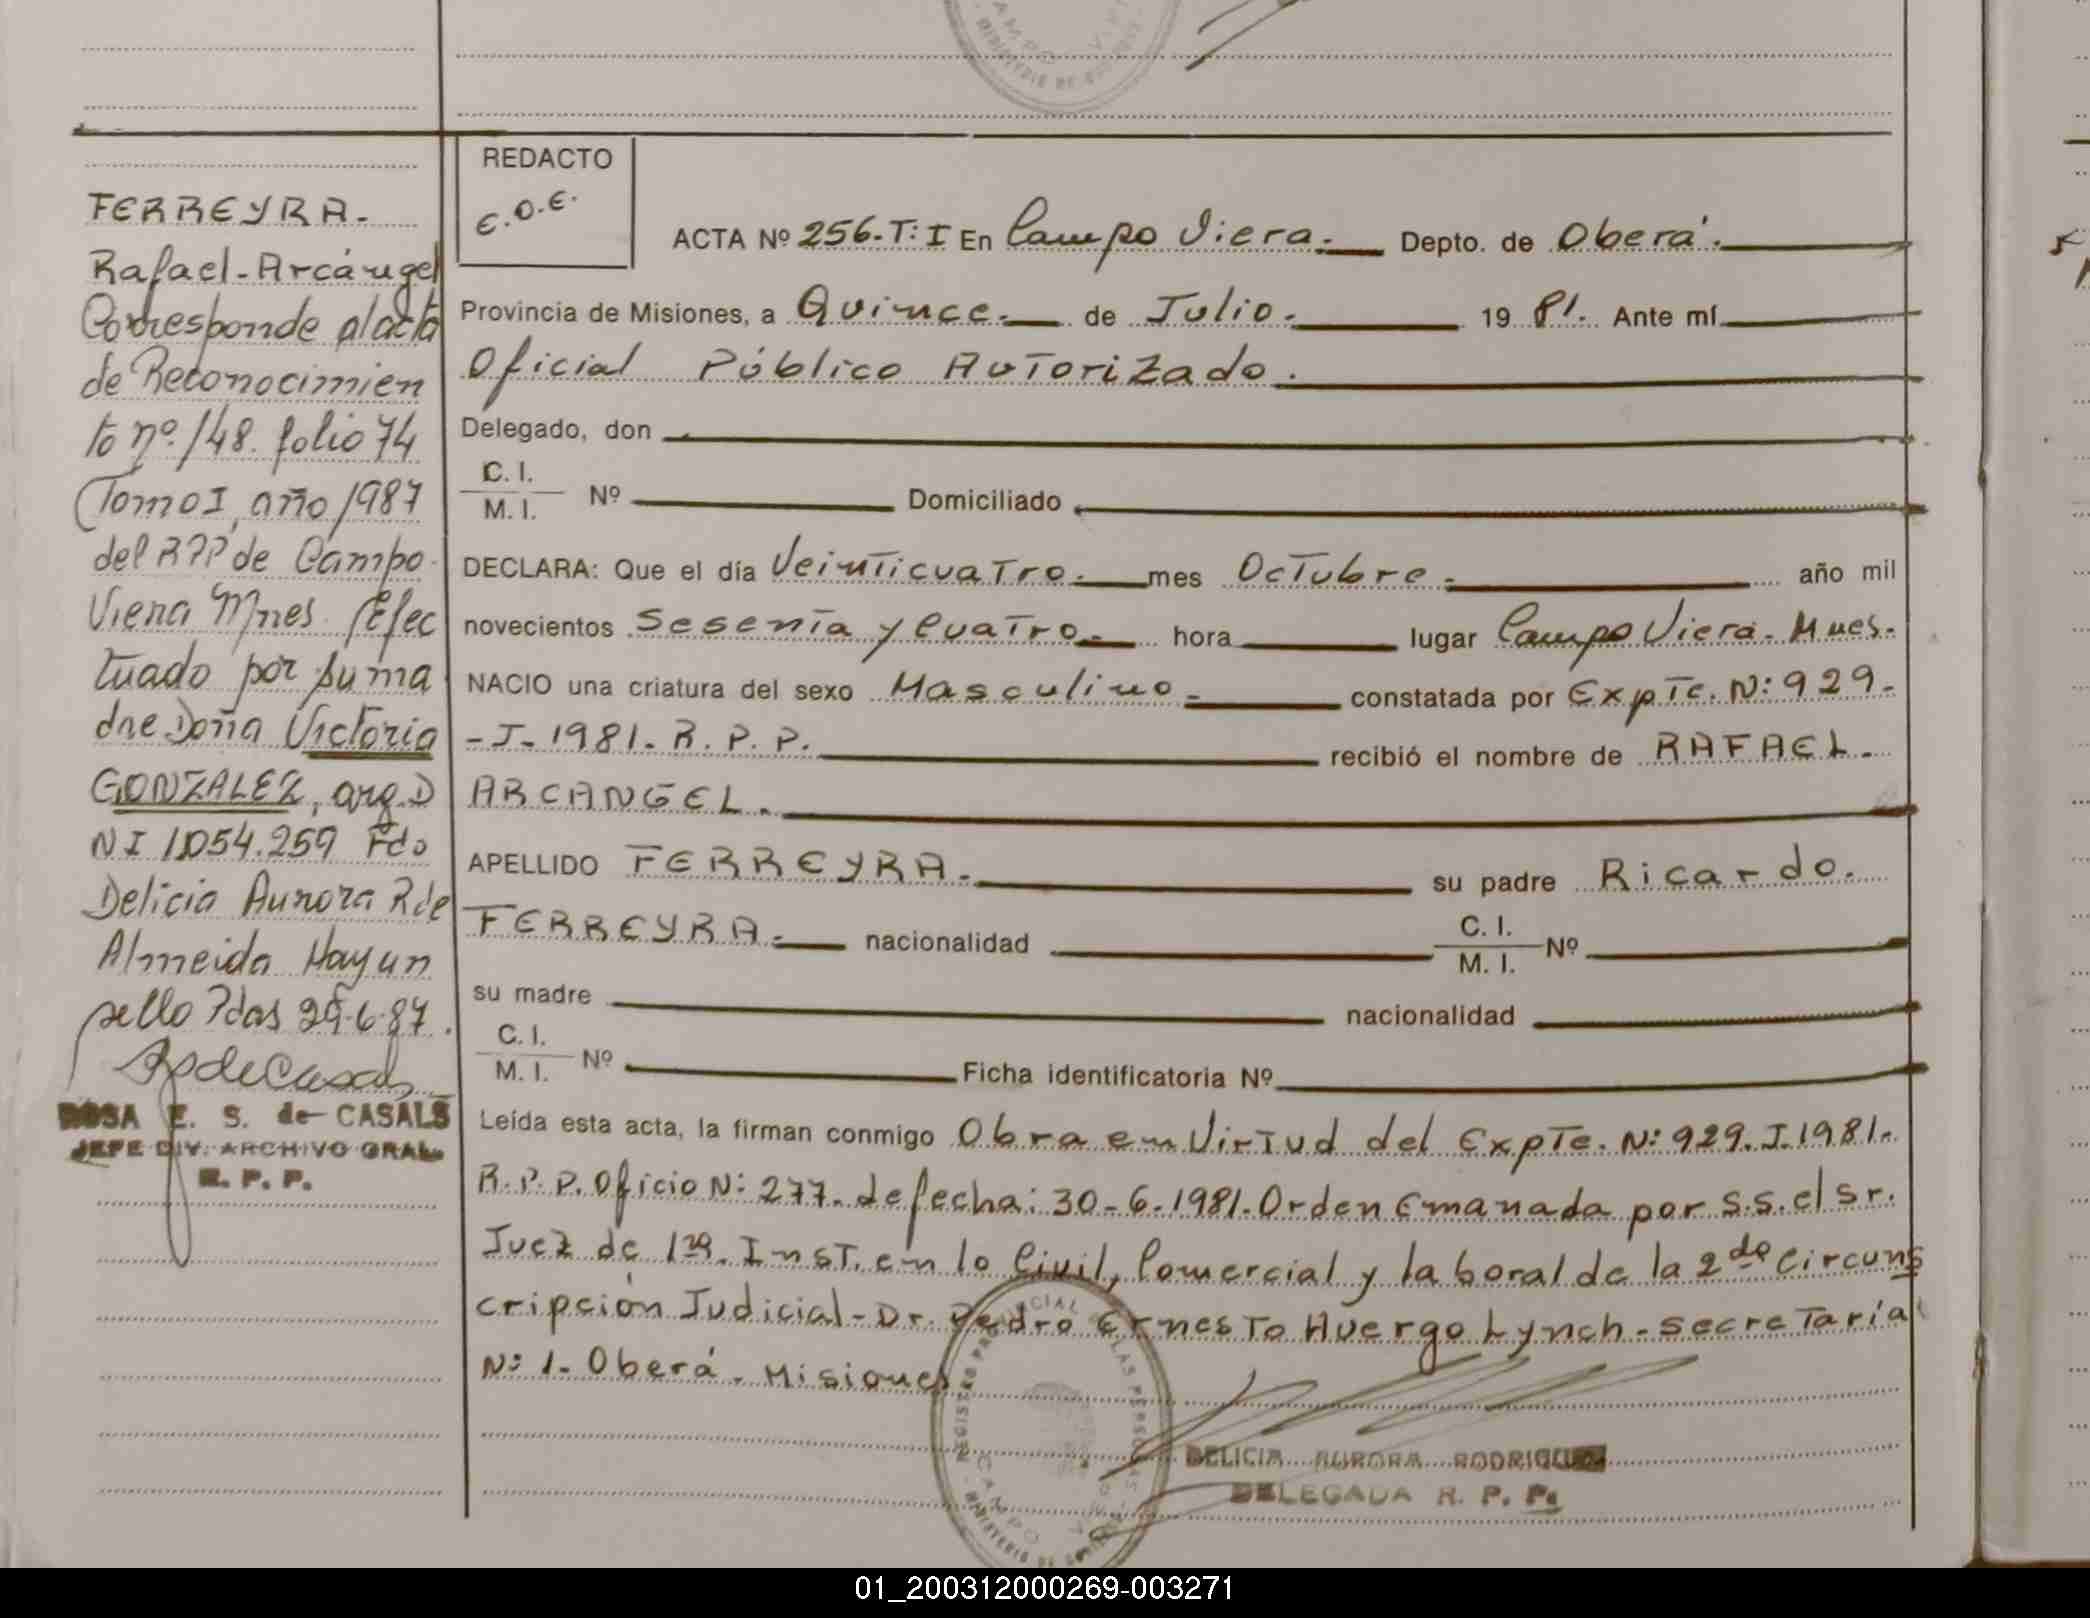 FERREYRA.
Rafael-Arcángel
Corresponde al acta
de Reconocimien
to nº 148. folio 74
Tomo I, año 1987
del RPP de Campo
Viera Mnes. Efec
tuado por su ma
dre Doña Victoria
GONZALEZ, arg. D
NI 1.054.259 Fdo
Delicia Aurora R de
Almeida Hay un
sello Pdas 29-6-87.
ROSA E. S. de CASALS
JEFE DIV. ARCHIVO GRAL.
R. P. P.
REDACTO
E.O.E.
ACTA Nº 256-T: I En Campo Viera. Depto. de Oberá.
Provincia de Misiones, a Quince. de Julio. 19 81. Ante mí
Oficial Público Autorizado.
Delegado, don
C. I.
M. I. Nº Domiciliado
DECLARA: Que el día Veinticuatro. mes Octubre. año mil
novecientos Sesenta y Cuatro. hora lugar Campo Viera. Mnes.
NACIO una criatura del sexo Masculino. constatada por Expte. N: 929-
-J-1981. R. P. P. recibió el nombre de RAFAEL.
ARCANGEL.
APELLIDO FERREYRA. su padre Ricardo.
FERREYRA. nacionalidad C. I.
M. I. Nº
su madre nacionalidad
C. I.
M. I. Nº Ficha identificatoria Nº
Leída esta acta, la firman conmigo Obra en Virtud del Expte. N: 929. J. 1981.
R. P. P. Oficio N: 277. de fecha: 30-6-1981. Orden Emanada por S.S. el Sr.
Juez de 1ra. Inst. en lo Civil, Comercial y laboral de la 2da Circuns
cripción Judicial - Dr. Pedro Ernesto Huergo Lynch - Secretaría
N: 1 - Oberá - Misiones
REGISTRO PROVINCIAL DE LAS PERSONAS
CAMPO
MINISTERIO DE
DELICIA AURORA RODRIGUEZ
DELEGADA R. P. P.
01_200312000269-003271